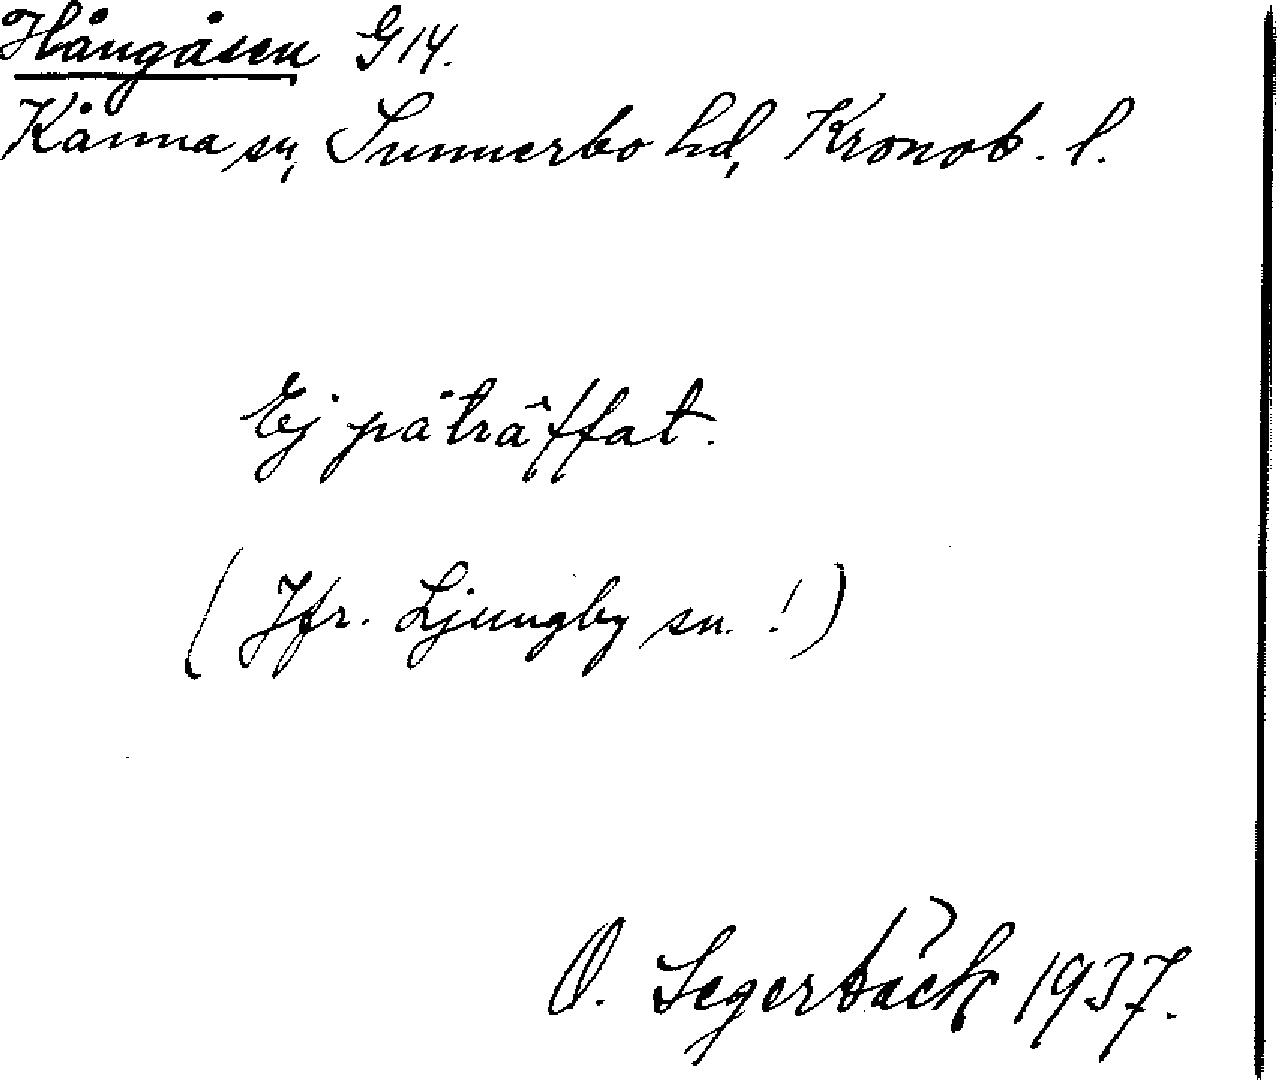 Hångåsen G14.
Kånna sn, Sunnerbo hd, Kronob. l.
Ej påträffat.
(Jfr. Ljungby sn. !)
O. Segerbäck 1937.